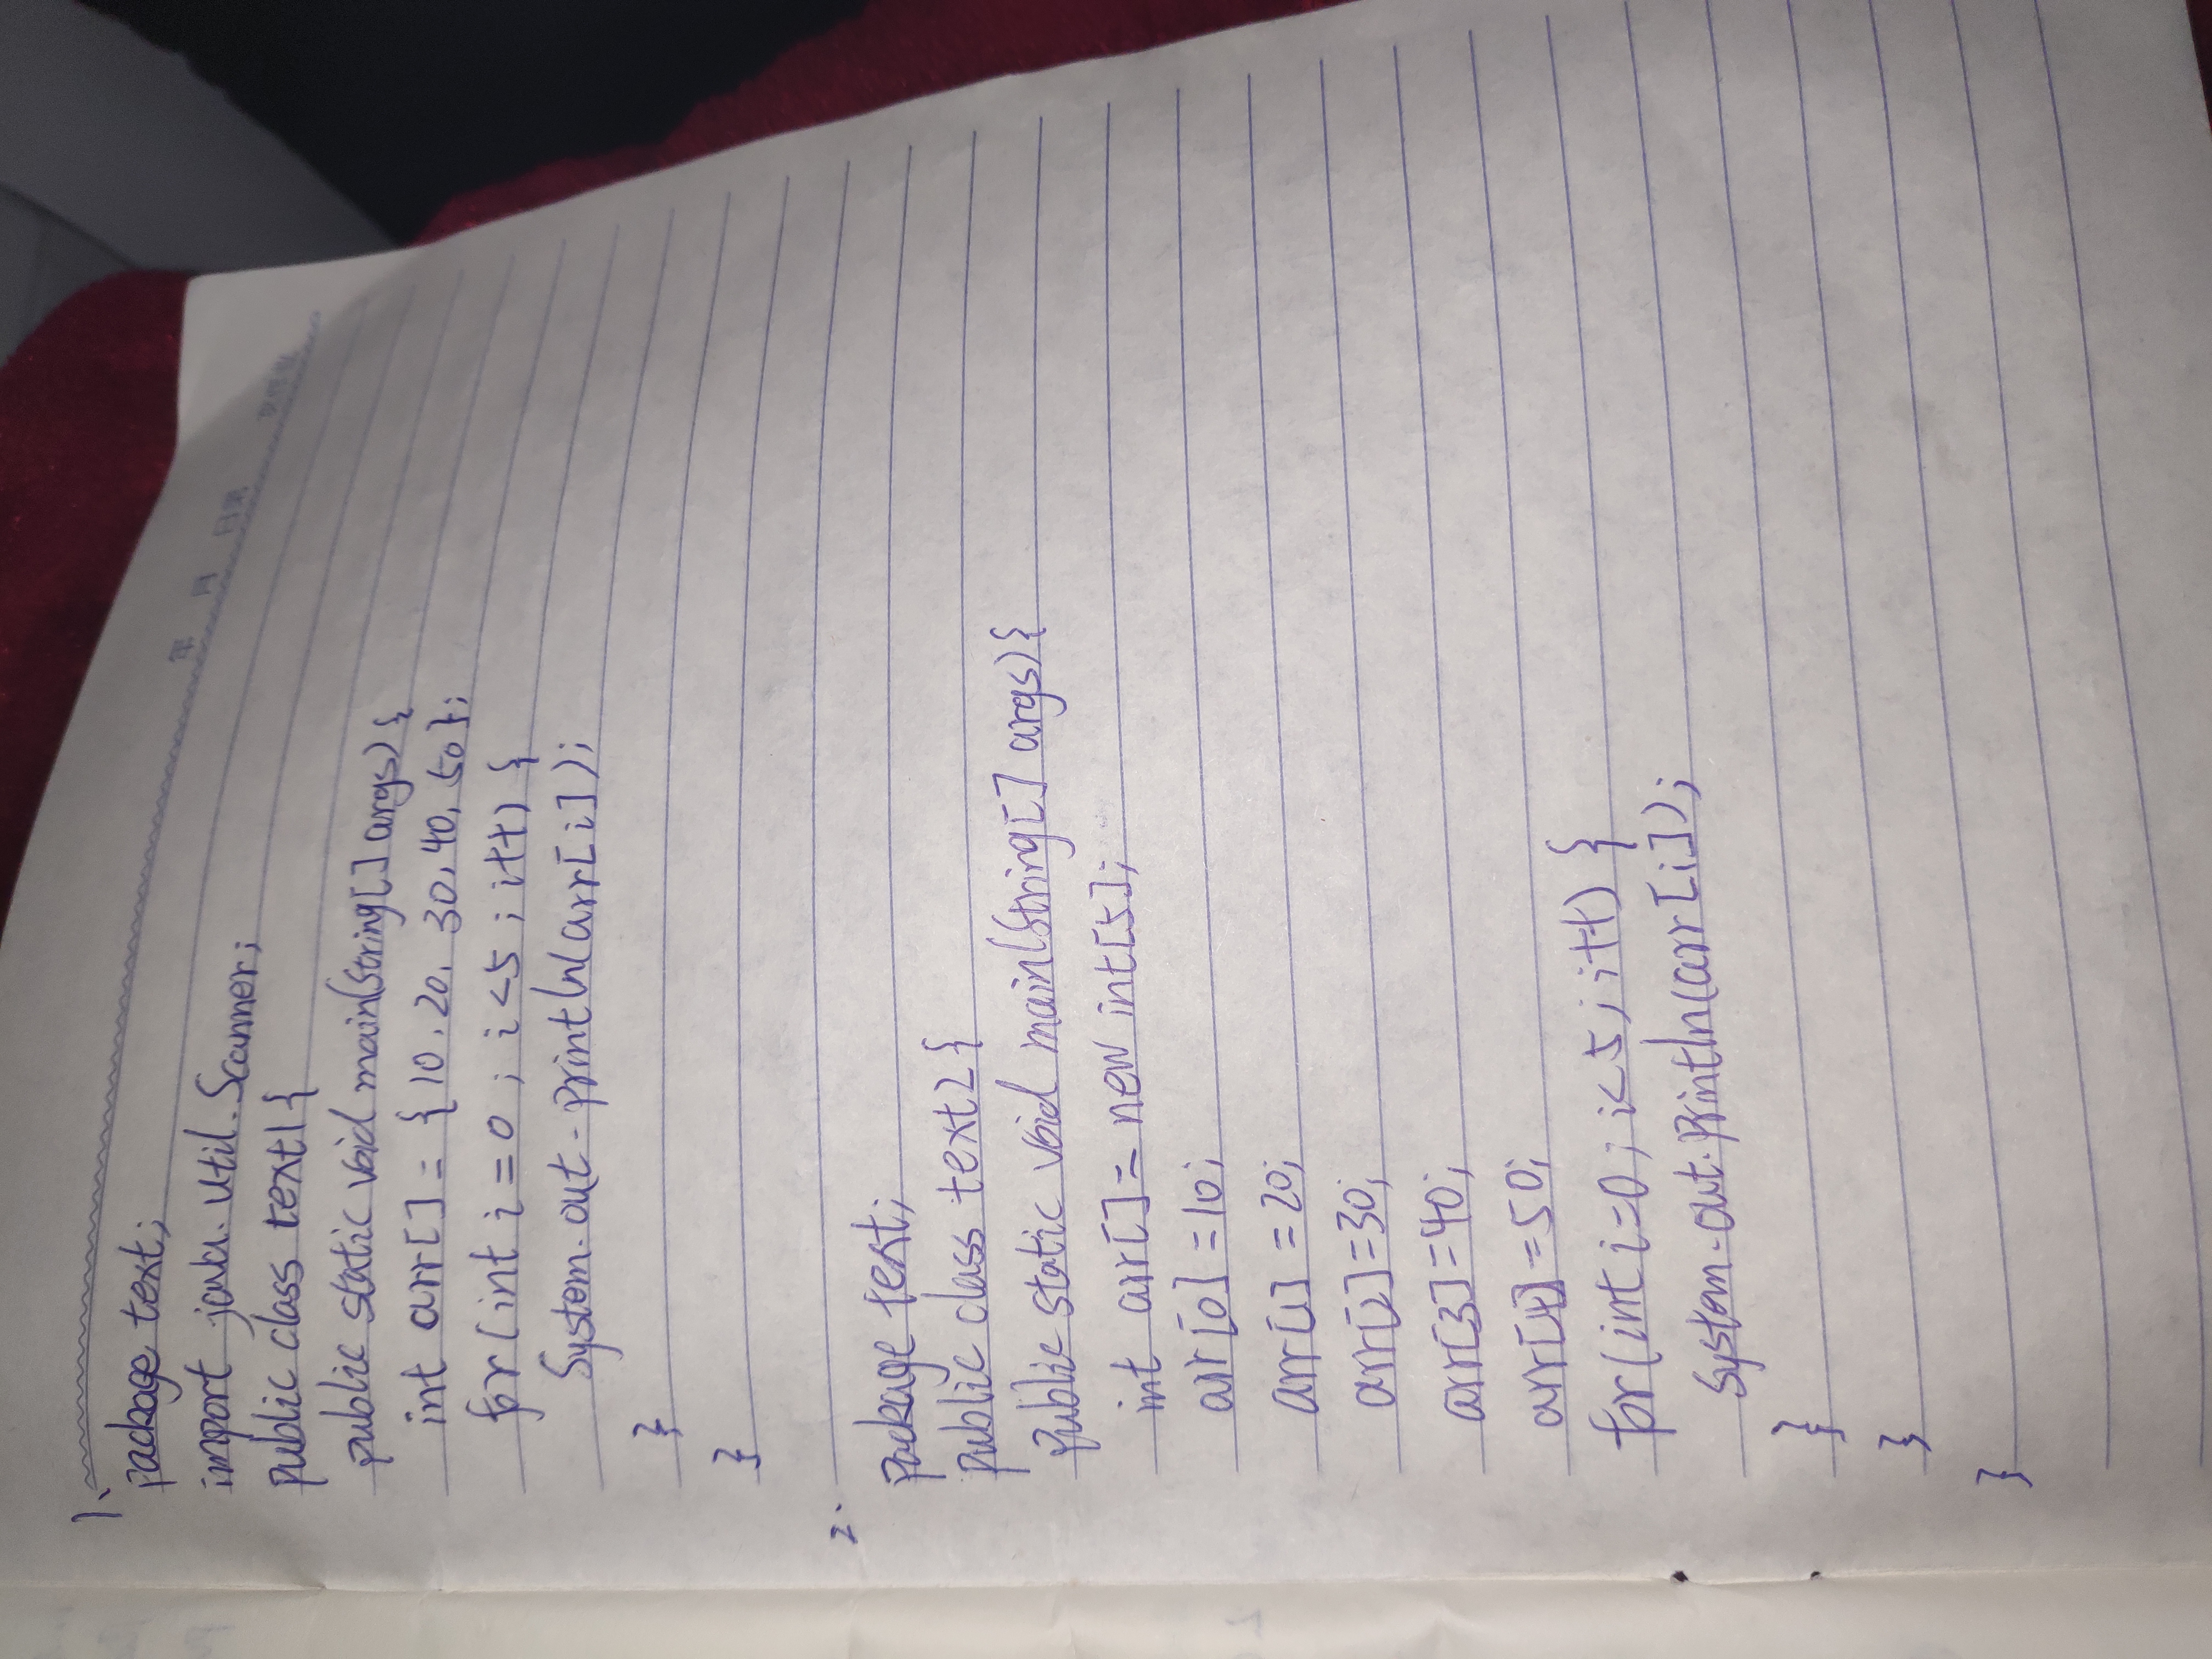 年 月 日期
1、
package text;
import java.util.Scanner;
public class text1{
public static void main(String[] args){
int arr[]={10.20.30.40.50};
for(int i=0;i<5;i++){
System.out.println(arr[i]);
}
}
2.
package text;
public class text2{
public static void main(String[] args){
int arr[]=new int[5];
arr[0]=10;
arr[1]=20;
arr[2]=30;
arr[3]=40;
arr[4]=50;
for(int i=0;i<5;i++){
System.out.println(arr[i]);
}
}
}